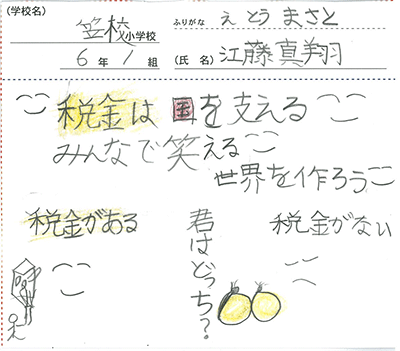 (学校名)
笠松小学校
6年1組
ふりがな えとう まさと
(氏名) 江藤真翔
税金は国を支える
みんなで笑える
世界を作ろう
税金がある
君はどっち?
税金がない